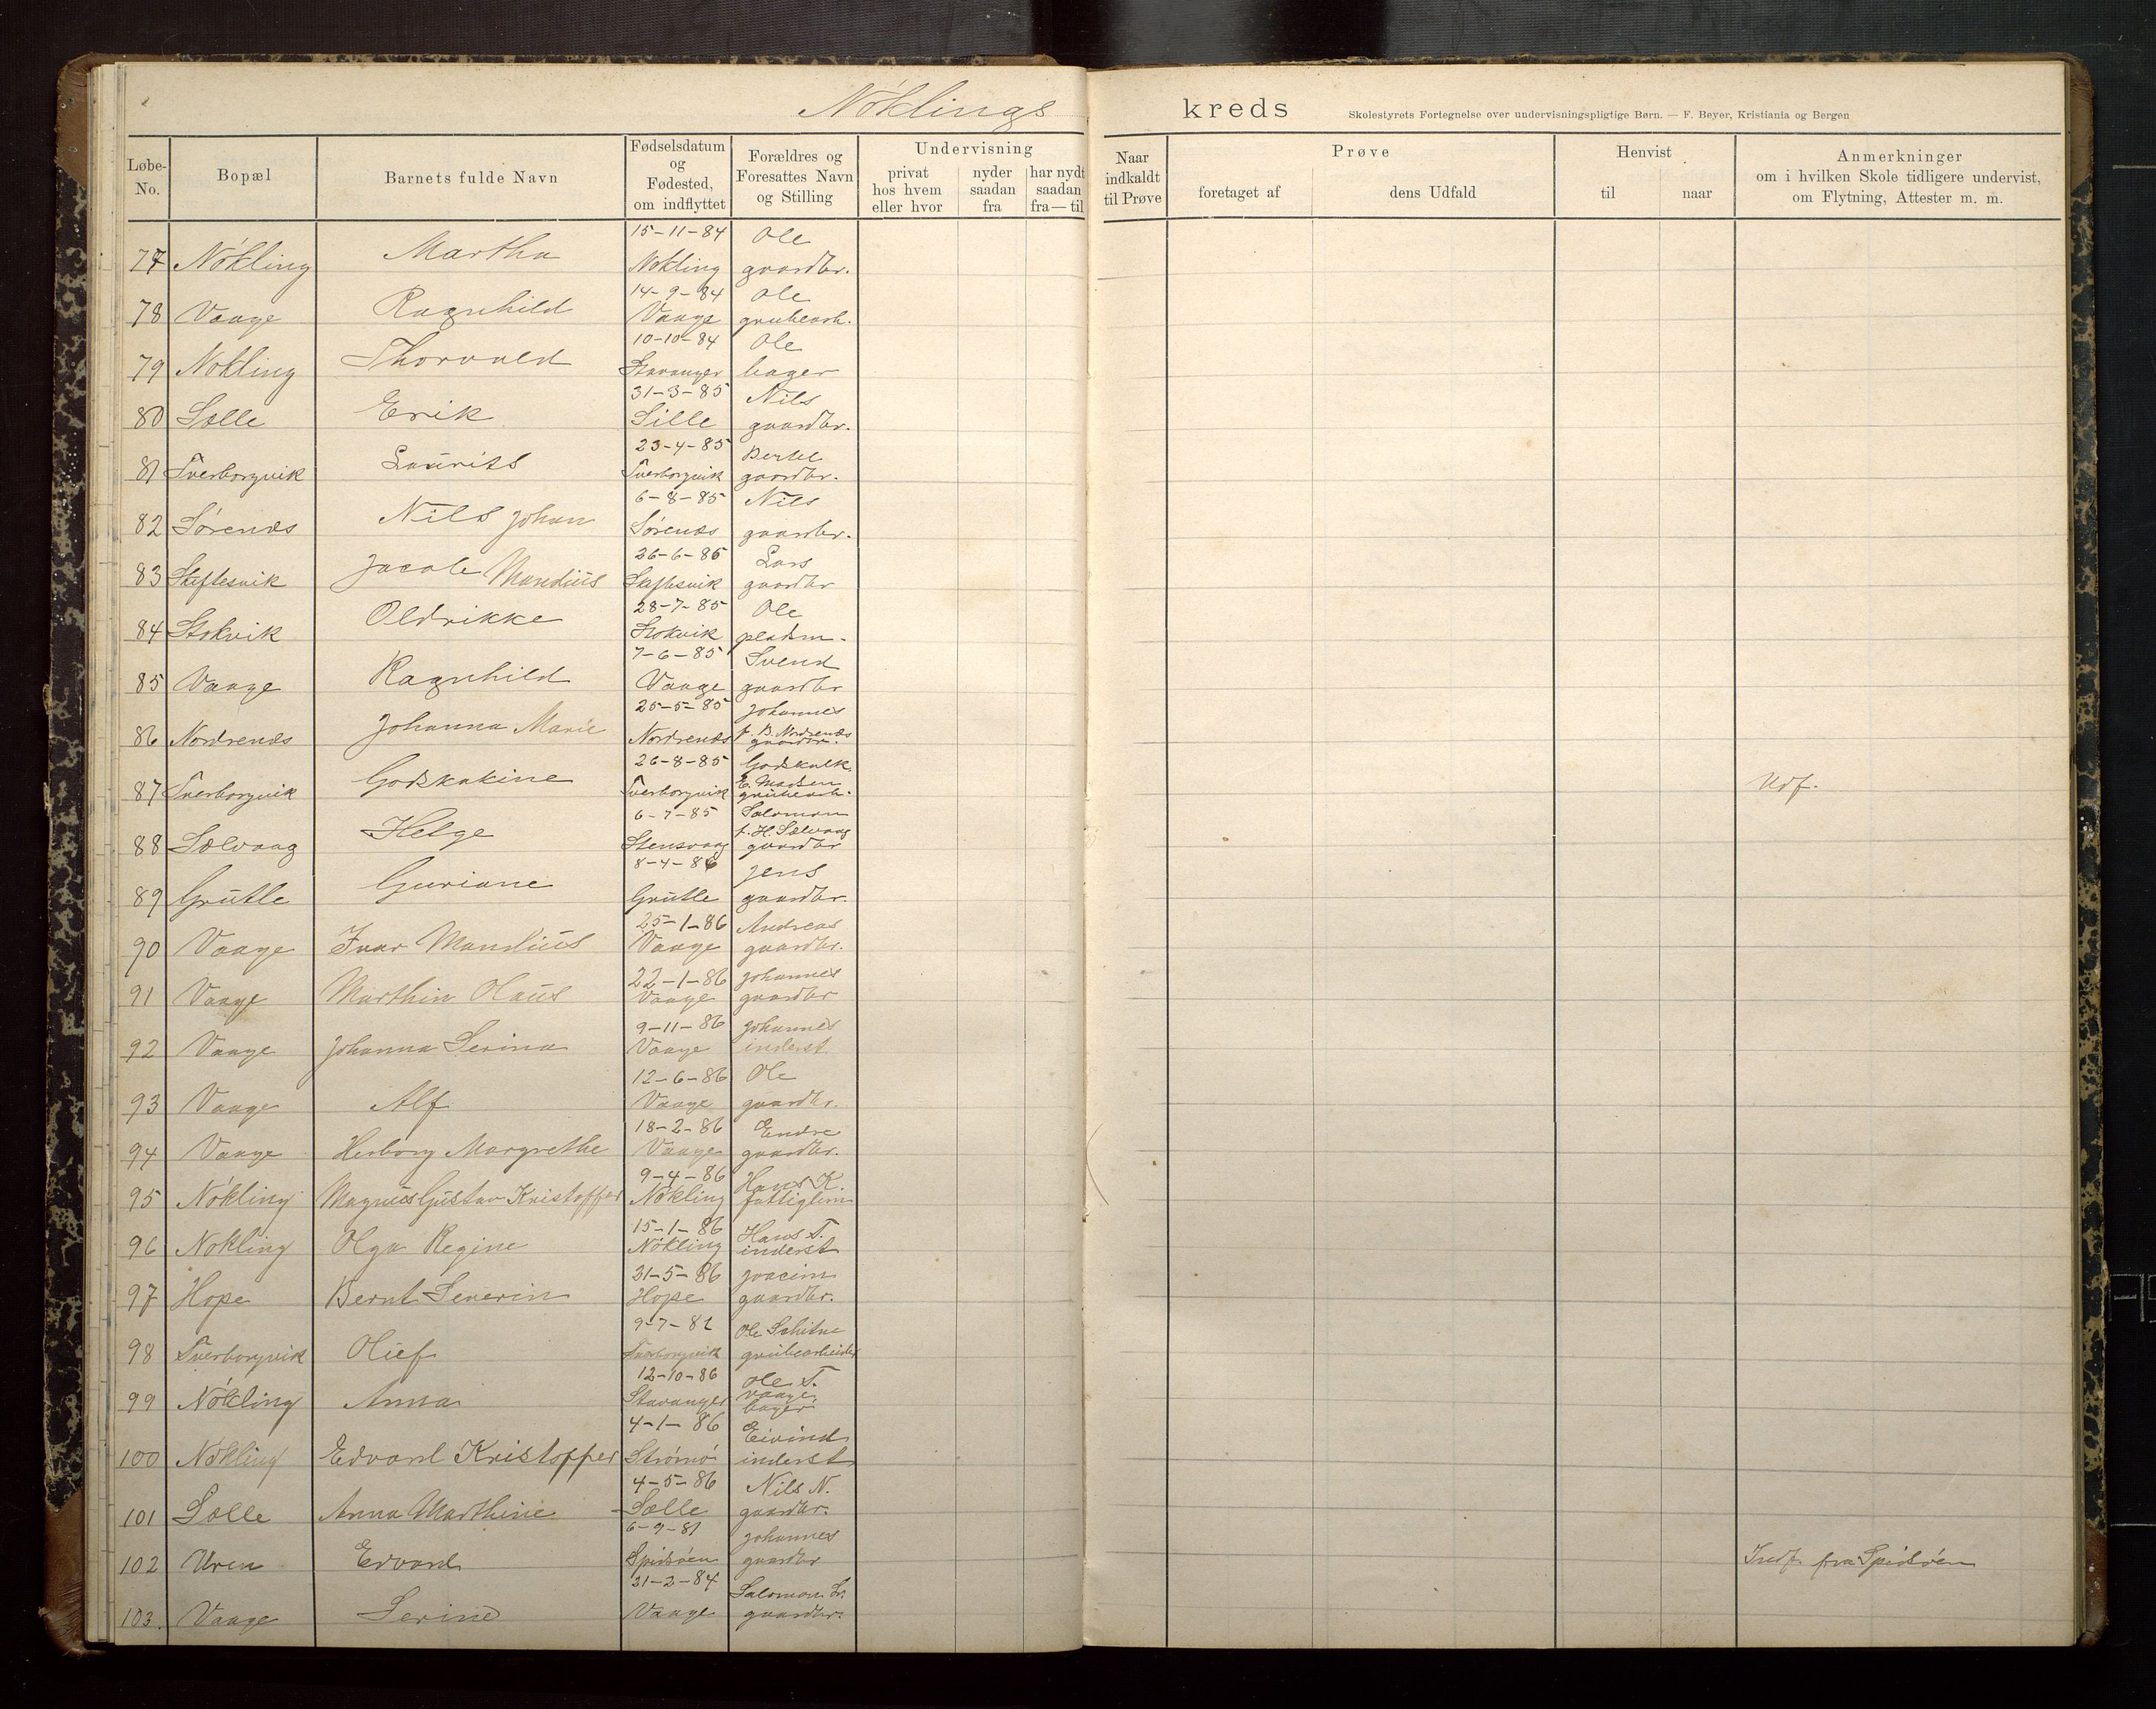 Nöklings kreds
Skolestyrets Fortegnelse over undervisningspligtige Børn. — F. Beyer, Kristiania og Bergen
Løbe-No. Bopæl Barnets fulde Navn Fødselsdatum og Fødested, om indflyttet Forældres og Foresattes Navn og Stilling Undervisning privat hos hvem eller hvor nyder saadan fra har nydt saadan fra — til Naar indkaldt til Prøve Prøve foretaget af dens Udfald Henvist til naar Anmerkninger om i hvilken Skole tidligere undervist, om Flytning, Attester m. m.
77 Nökling Martha 15-11-84 Nökling Ole gaardbr.
78 Vaage Ragnhild 14-9-84 Vaage Ole grubearb.
79 Nökling Thorvald 10-10-84 Stavanger Ole bager
80 Sælle Erik 31-3-85 Sille Nils gaardbr.
81 Tverborgvik Laurits 23-4-85 Tverborgvik Bertel gaardbr.
82 Sörenæs Nils Johan 6-8-85 Sörenæs Nils gaardbr.
83 Skeftesvik Jacob Mandius 26-6-85 Skeftesvik Lars gaardbr
84 Stokvik Oldrikke 28-7-85 Stokvik Ole pladsm.
85 Vaage Ragnhild 7-6-85 Vaage Svend gaardbr
86 Nordrenæs Johanna Marie 25-5-85 Nordrenæs Johannes f. B. Nordrenæs gaardbr.
87 Tverborgvik Godskalkine 26-8-85 Tverborgvik Godskalk E. Madsen grubearb. Udf.
88 Sælvaag Helge 6-7-85 Stensvaag Salomon f. H. Sælvaag gaardbr
89 Grutle Guriane 8-4-86 Grutle Jens gaardbr.
90 Vaage Ivar Mandius 25-1-86 Vaage Andreas gaardbr.
91 Vaage Marthin Olaus 22-1-86 Vaage Johannes gaardbr
92 Vaage Johanna Serina 9-11-86 Vaage Johannes inderst
93 Vaage Alf 12-6-86 Vaage Ole gaardbr.
94 Vaage Herborg Margrethe 18-2-86 Vaage Endre gaardbr.
95 Nökling Magnus Gustav Kristoffer 9-4-86 Nökling Hans K. fattiglem
96 Nökling Olga Regine 15-1-86 Nökling Hans T. inderst
97 Hope Bernt Severin 31-5-86 Hope Joacim gaardbr.
98 Tverborgvik Oluf 9-7-82 Tverborgvik Ole grubearbeider
99 Nökling Anna 12-10-86 Stavanger Ole T. Vaage. bager
100 Nökling Edvard Kristoffer 4-1-86 Strömö Eivind inderst
101 Sælle Anna Marthine 4-5-86 Sælle Nils N. gaardbr.
102 Uren Edvard 6-9-81 Spidsöen Johannes gaardbr Indf. fra Spidsöen
103. Vaage Serine 21-2-84 Vaage Salomon gaardbr.